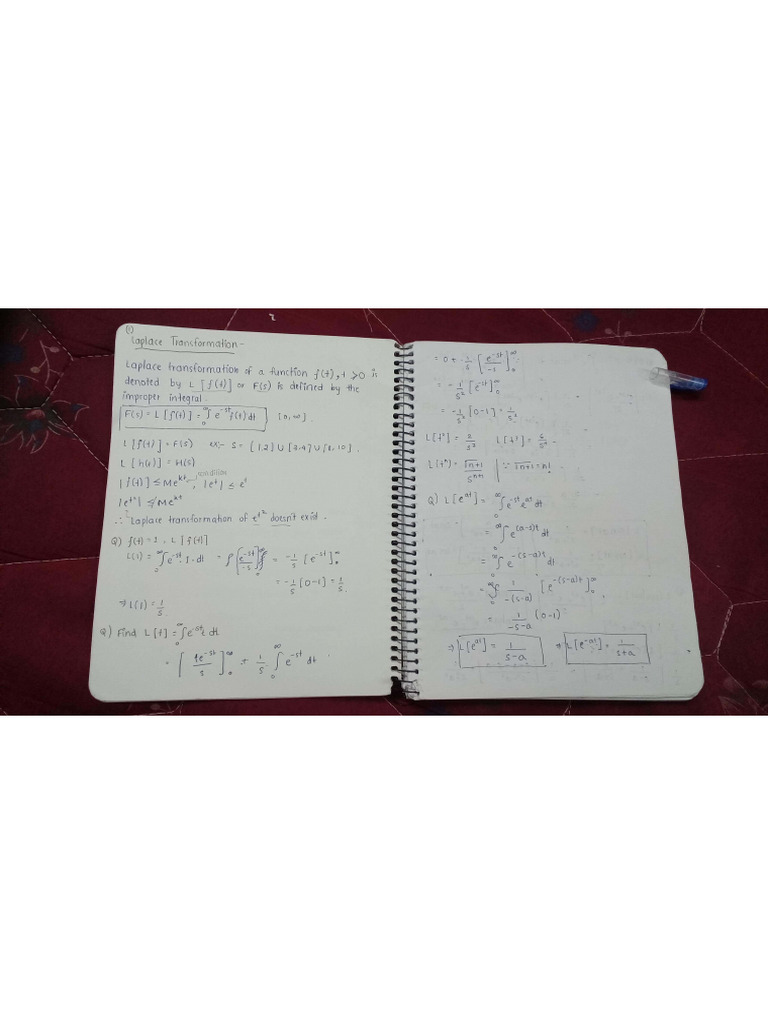 (1)
Laplace Transformation -
Laplace transformation of a function f(t), t > 0 is
denoted by L [f(t)] or F(s) is defined by the
improper integral.
F(s) = L [f(t)] = ∫₀^∞ e^-st f(t) dt [0, ∞].
L [f(t)] = F(s) ex:- S = [1,2] ∪ [3,4] ∪ [8,10].
L [h(t)] = H(s)
|f(t)| ≤ Me^kt condition, |e^t| ≤ e^t
|e^t²| ≰ Me^kt
∴ Laplace transformation of e^t² doesn't exist.
Q) f(t) = 1, L [f(t)]
L(1) = ∫₀^∞ e^-st · 1 · dt = [e^-st / -s]₀^∞ = -1/s [e^-st]₀^∞
= -1/s [0-1] = 1/s.
⇒ L(1) = 1/s.
Q) Find L[t] = ∫₀^∞ e^-st t dt
= [te^-st / s]₀^∞ + 1/s ∫₀^∞ e^-st dt
= 0 + 1/s [e^-st / -s]₀^∞
= -1/s² [e^-st]₀^∞
= -1/s² [0-1] = 1/s².
L[t²] = 2/s³ L[t³] = 6/s⁴
L(tⁿ) = √n+1 / s^n+1 | ∵ √n+1 = n!
Q) L[e^at] = ∫₀^∞ e^-st e^at dt
= ∫₀^∞ e^(a-s)t dt
= ∫₀^∞ e^-(s-a)t dt
= 1/-(s-a) [e^-(s-a)t]₀^∞
= 1/-s-a (0-1)
⇒ L[e^at] = 1/s-a ⇒ L[e^-at] = 1/s+a